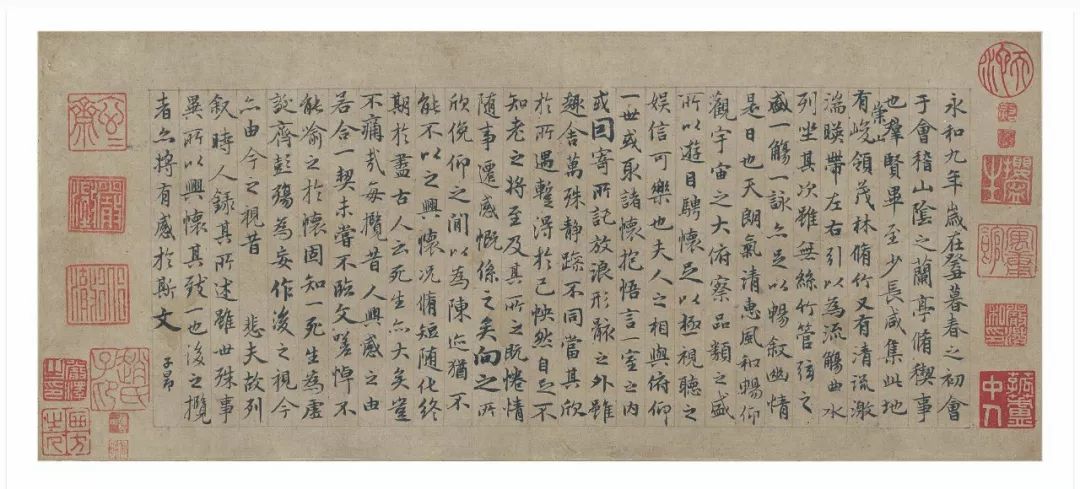 永和九年歲在癸丑暮春之初會
于會稽山陰之蘭亭脩稧事
也羣賢畢至少長咸集此地
有崇山峻領茂林脩竹又有清流激
湍暎帶左右引以為流觴曲水
列坐其次雖無絲竹管弦之
盛一觴一詠亦足以暢敘幽情
是日也天朗氣清惠風和暢仰
觀宇宙之大俯察品類之盛
所以遊目騁懷足以極視聽之
娛信可樂也夫人之相與俯仰
一世或取諸懷抱悟言一室之內
或因寄所託放浪形骸之外雖
趣舍萬殊静躁不同當其欣
於所遇蹔得於己怏然自足不
知老之將至及其所之既惓情
隨事遷感慨係之矣向之所
欣俛仰之閒以為陳迹猶不
能不以之興懷況脩短隨化終
期於盡古人云死生亦大矣豈
不痛哉每攬昔人興感之由
若合一契未嘗不臨文嗟悼不
能喻之於懷固知一死生為虛
誕齊彭殤為妄作後之視今
亦由今之視昔 悲夫故列
敘時人錄其所述雖世殊事
異所以興懷其致一也後之攬
者亦將有感於斯文
子昂
趙氏子昂